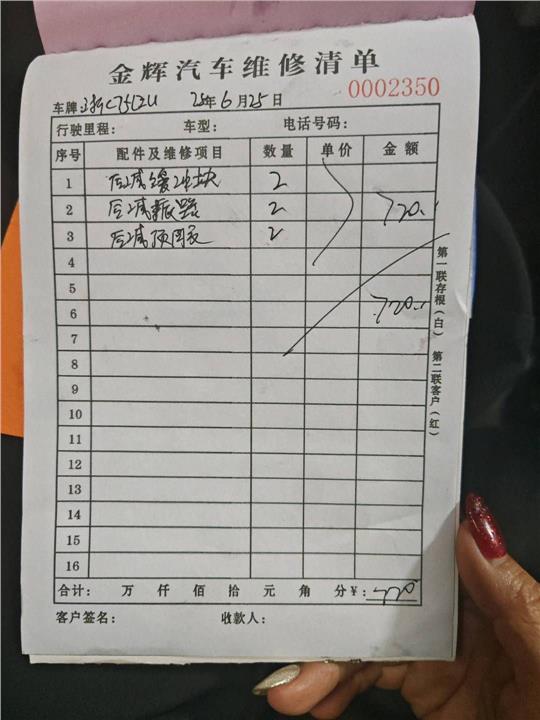 金辉汽车维修清单
0002350
车牌 25年6月25日
行驶里程： 车型： 电话号码：
序号 配件及维修项目 数量 单价 金额
1 后减缓冲块 2
2 后减振器 2 720.
3 后减顶固衣 2
4
5
6 720.
7
8
9
10
11
12
13
14
15
16
合计： 万 仟 佰 拾 元 角 分¥：720
客户签名： 收款人：
第一联存根（白） 第二联客户（红）